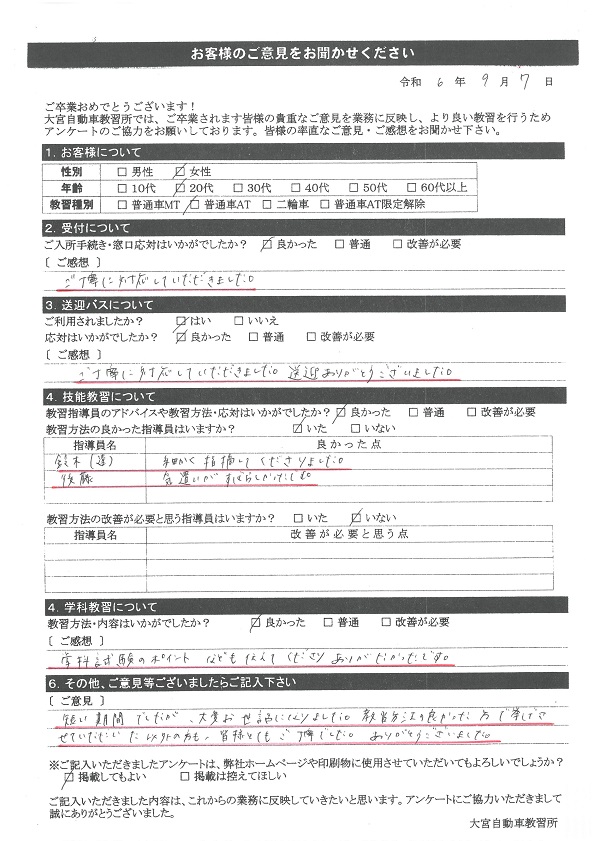 お客様のご意見をお聞かせください
令和 6 年 9 月 7 日
ご卒業おめでとうございます!
大宮自動車教習所では、ご卒業されます皆様の貴重なご意見を業務に反映し、より良い教習を行うため
アンケートのご協力をお願いしております。皆様の率直なご意見・ご感想をお聞かせ下さい。
1. お客様について
性別 □ 男性 ☑ 女性
年齢 □ 10代 ☑ 20代 □ 30代 □ 40代 □ 50代 □ 60代以上
教習種別 □ 普通車MT ☑ 普通車AT □ 二輪車 □ 普通車AT限定解除
2. 受付について
ご入所手続き・窓口応対はいかがでしたか? ☑ 良かった □ 普通 □ 改善が必要
〔 ご感想 〕
ご丁寧に対応していただきました。
3. 送迎バスについて
ご利用されましたか? ☑ はい □ いいえ
応対はいかがでしたか? ☑ 良かった □ 普通 □ 改善が必要
〔 ご感想 〕
ご丁寧に対応していただきました。送迎ありがとうございました。
4. 技能教習について
教習指導員のアドバイスや教習方法・応対はいかがでしたか? ☑ 良かった □ 普通 □ 改善が必要
教習方法の良かった指導員はいますか? ☑ いた □ いない
指導員名 良かった点
鈴木(達) 細かく指摘してくださりました。
後藤 気遣いがすばらしかったです。
教習方法の改善が必要と思う指導員はいますか? □ いた ☑ いない
指導員名 改善が必要と思う点
4. 学科教習について
教習方法・内容はいかがでしたか? ☑ 良かった □ 普通 □ 改善が必要
〔 ご感想 〕
学科試験のポイントなども伝えてくださりありがたかったです。
6. その他、ご意見等ございましたらご記入下さい
〔 ご意見 〕
短い期間でしたが、大変お世話になりました。教習方法の良かった方で挙げさ
せていただいた以外の方も、皆様とてもご丁寧でした。ありがとうございました。
※ご記入いただきましたアンケートは、弊社ホームページや印刷物に使用させていただいてもよろしいでしょうか?
☑ 掲載してもよい □ 掲載は控えてほしい
ご記入いただきました内容は、これからの業務に反映していきたいと思います。アンケートにご協力いただきまして
誠にありがとうございました。
大宮自動車教習所